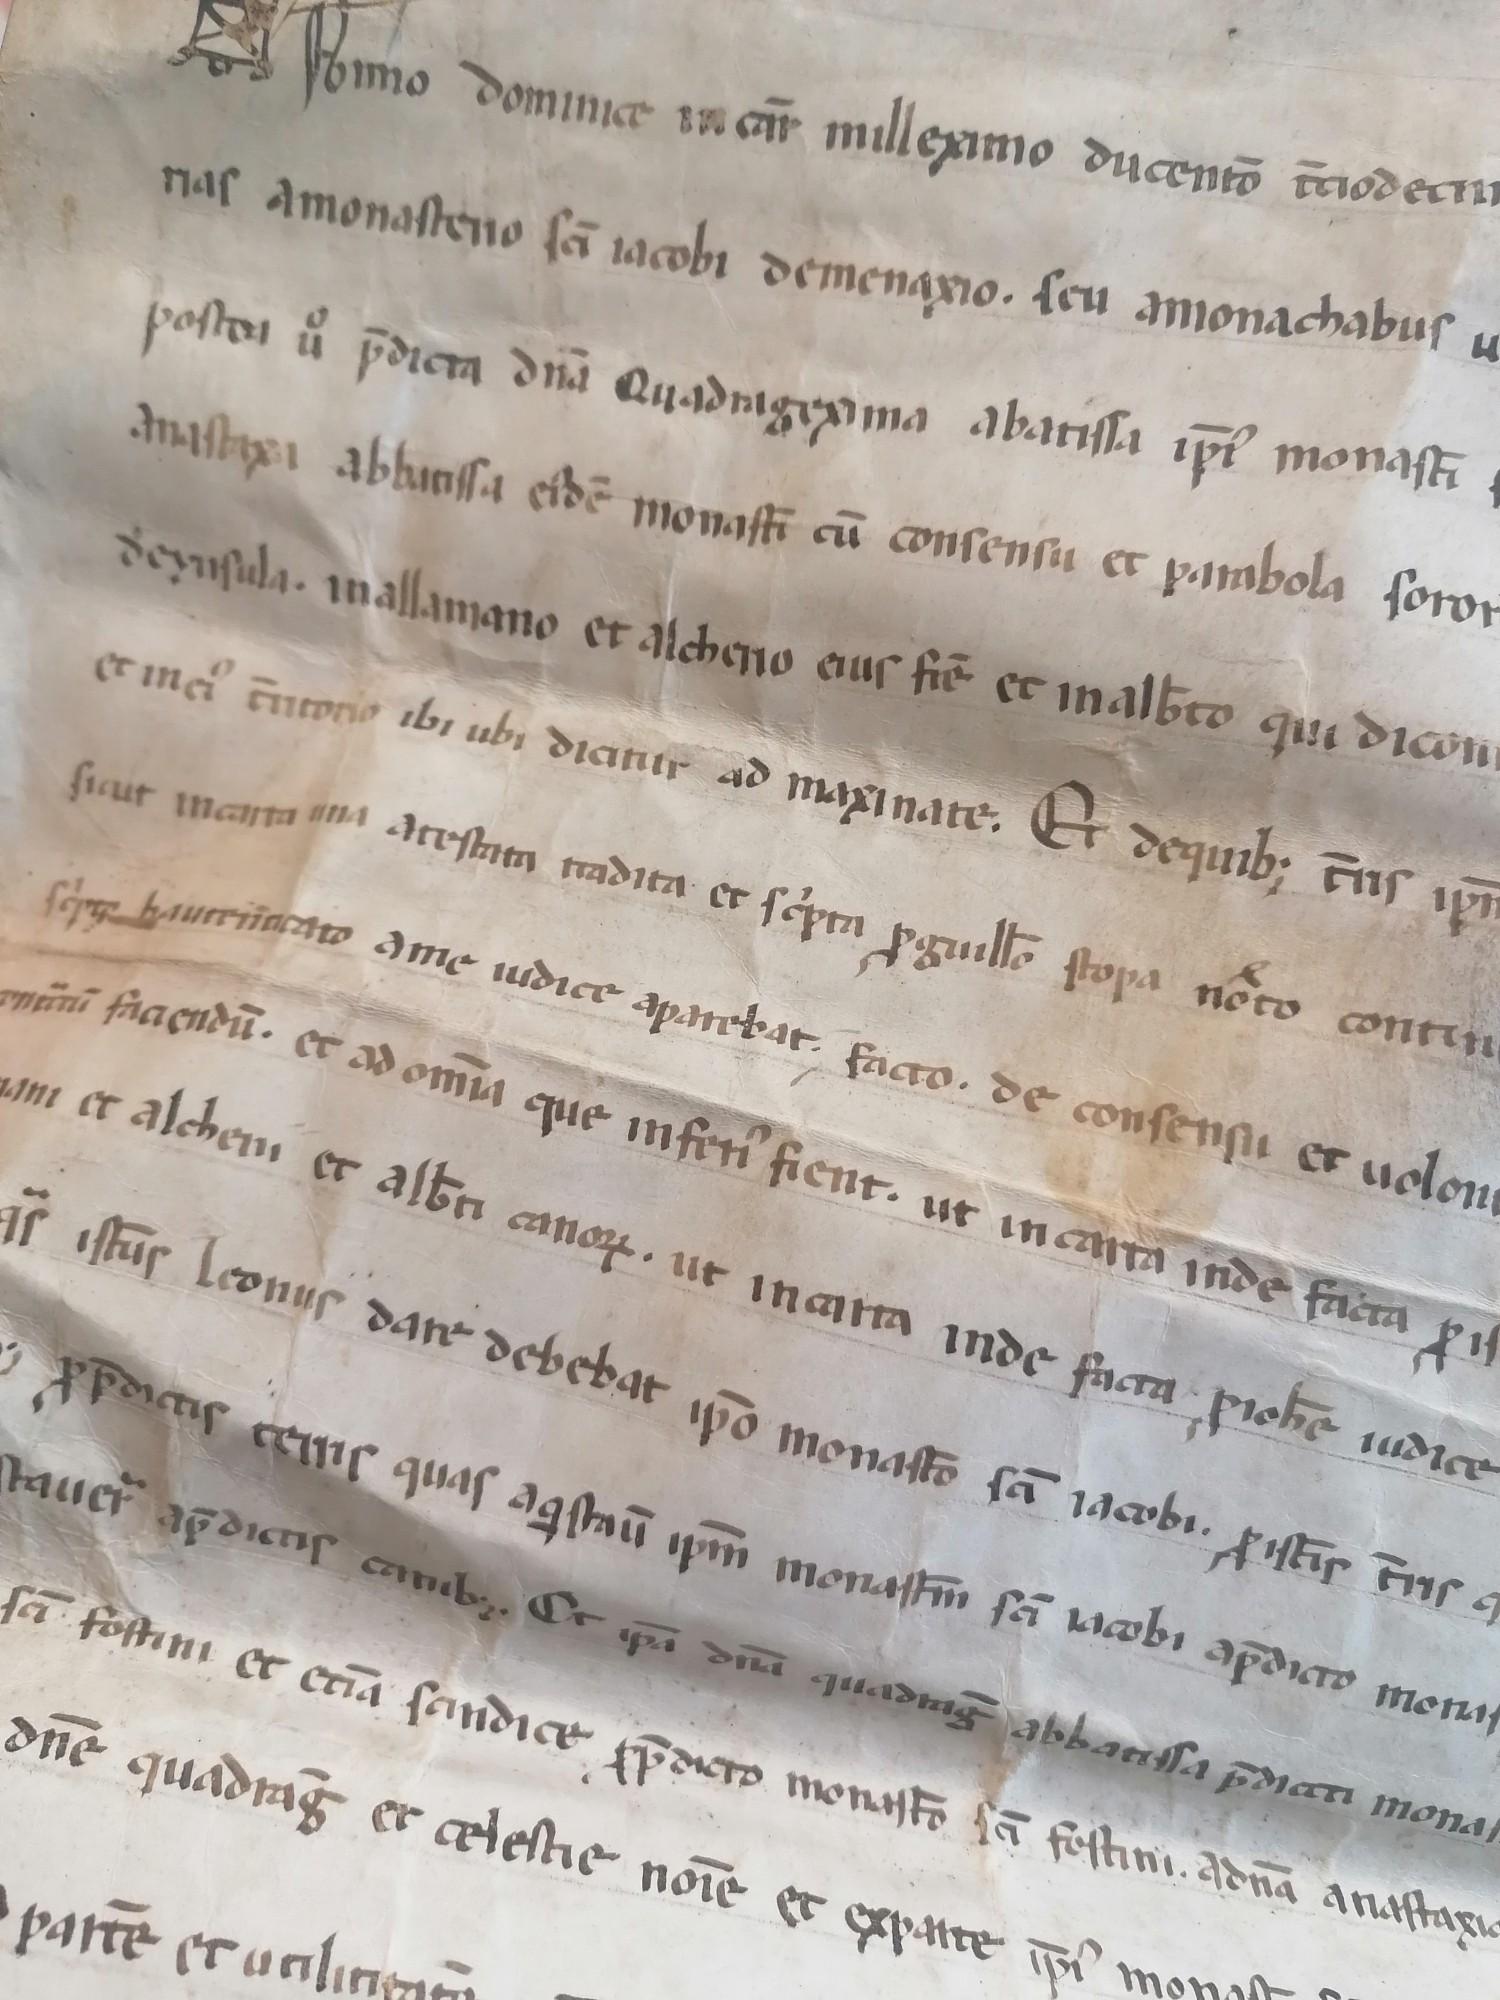 Anno dominice incar̄ milleximo ducento͞ t͞ciodecim
nas amonasterio sc͞i iacobi demenaxio. seu amonachabus u
postea uͦ p͞dicta dn͞a Quadragexima abatissa ip͞iˀ monast͞i
anastaxia abbatissa eide͞ monast͞i cu͞ consensu et parabola soror
dexinsula. inallamano et alcherio eius fr͞e et inalb͞to qui dicon
et in ei͛ t͞ritorio ibi ubi dicitur ad maxinate. Et dequib; t͞ris ip͞m
sicut incarta una atestata tradita et sc͛pta ꝑguill͞o stopa noto contin
autenticato ame iudice aparebat. facto. de consensu et uolunt
faciendu͞. et ad om͞ia que inferi͛ fient. ut in carta inde facta ꝑ is
et alcherii et alb͞ti canoꝝ. ut in carta inde facta ꝑ ioh͞e iudice
qs͞ ist͞us Leonus dare debebat ip͞o monast͞o sc͞i iacobi. ꝑ ist͞is t͞ris q
ꝑp͞dictis terris quas aq͛stau͞ ip͞m monast͞m sc͞i iacobi ap͞dicto monas
stauer͛ ap͞dictis canib;. Et ip͞a dn͞a quadrag͞ abbatissa p͞dicti monas
sc͞i fostini et eti͞a scindice ꝑp͞dicto monast͞o sc͞i fostini. adn͞a anastaxia
dn͞e quadrag͞ et celestie noi͞e et exparte ip͞iˀ monast͞
parte͞ et utilitate͞